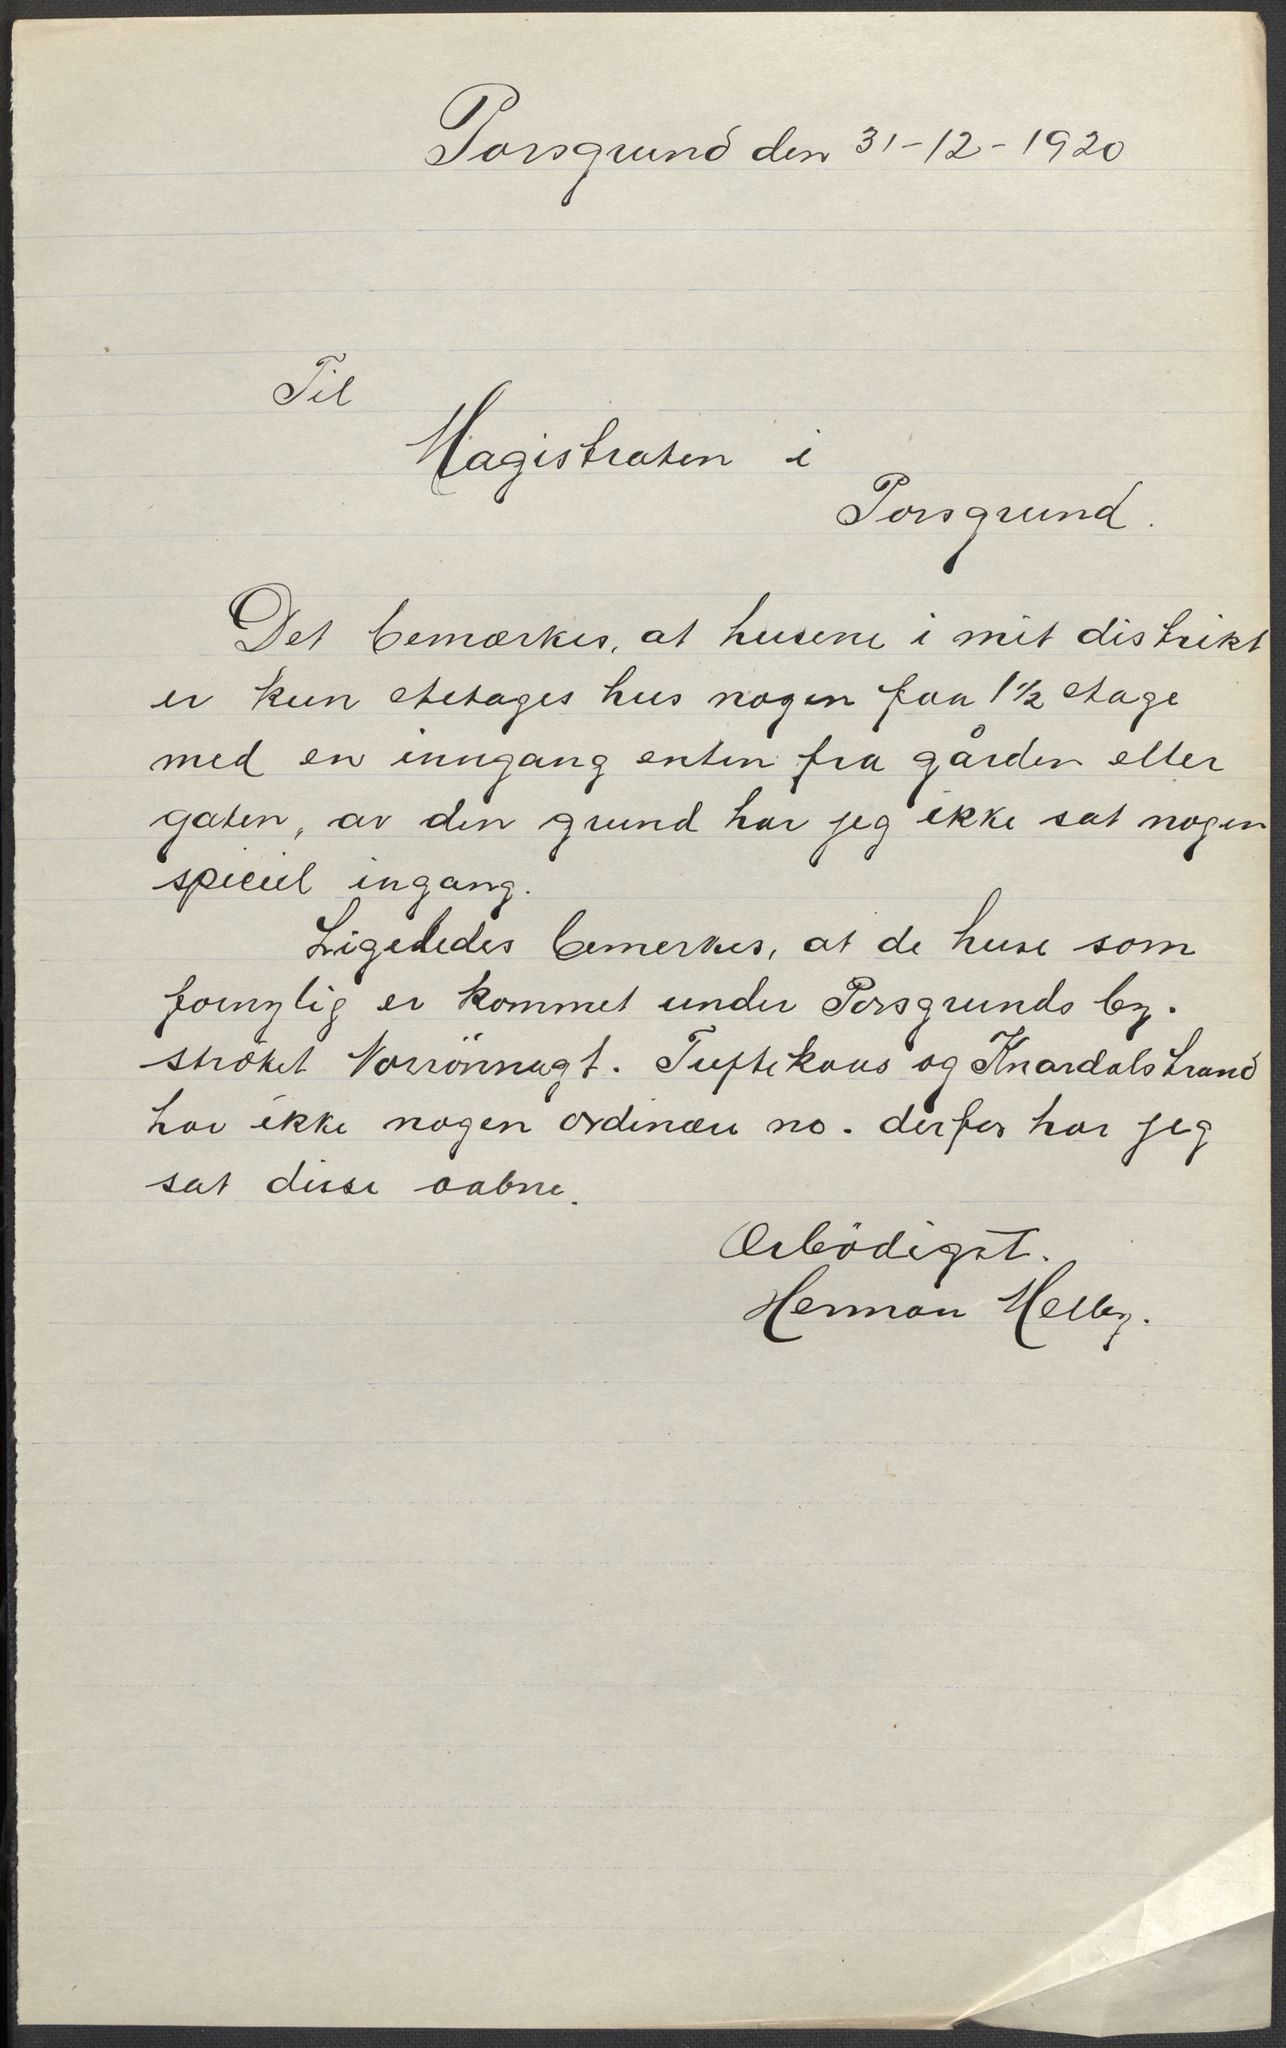 Porsgrund den 31-12-1920
Til
Magistraten i
Porsgrund.
Det bemærkes, at husene i mit distrikt
er kun etetages hus nogen faa 1½ etage
med en inngang enten fra gården eller
gaten, av den grund har jeg ikke sat nogen
speciel ingang.
Ligeledes bemerkes, at de huse som
fornylig er kommet under Porsgrunds by.
ströket . Tuftekaas og Knardalstrand
har ikke nogen ordinær no. derfor har jeg
sat disse aabne.
Ærbödigst.
Herman Melby.